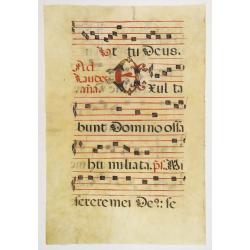 ut tu Deus.
Ad
Laudes
aña. Exulta
bunt Domino ossa
humiliata. ps. Mi
serere mei De9: se